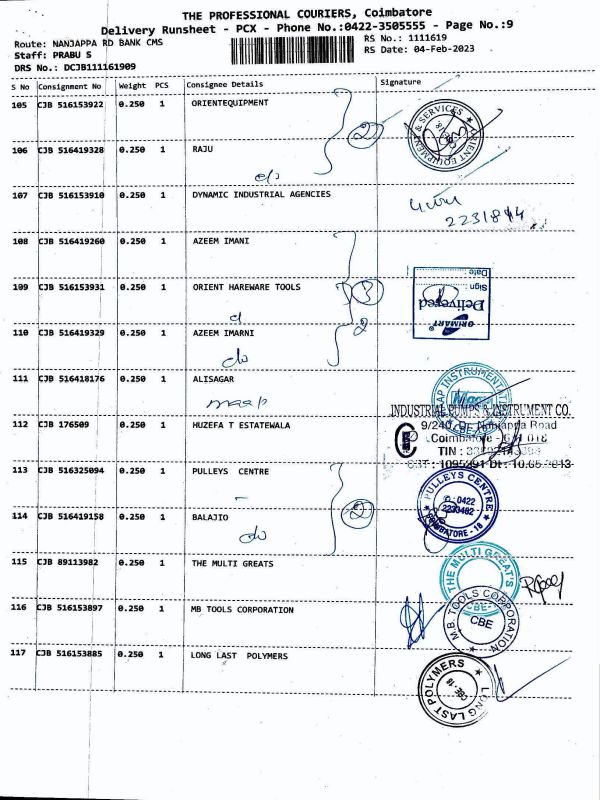 THE PROFESSIONAL COURIERS, Coimbatore
Delivery Runsheet - PCX - Phone No.:0422-3505555 - Page No.:9
Route: NANJAPPA RD BANK CMS
RS No.: 1111619
Staff: PRABU S
RS Date: 04-Feb-2023
DRS No.: DCJB111161909
S No Consignment No Weight PCS Consignee Details Signature
105 CJB 516153922 0.250 1 ORIENTEQUIPMENT
2
ORIENT EQUIPMENT & SERVICES
106 CJB 516419328 0.250 1 RAJU
107 CJB 516153910 0.250 1 DYNAMIC INDUSTRIAL AGENCIES
108 CJB 516419260 0.250 1 AZEEM IMANI
Date :
Sign :
Delivered
GRIMART
109 CJB 516153931 0.250 1 ORIENT HAREWARE TOOLS
3
110 CJB 516419329 0.250 1 AZEEM IMARNI
2
do
111 CJB 516418176 0.250 1 ALISAGAR
maap
INDUSTRIAL PUMPS & INSTRUMENT CO.
112 CJB 176509 0.250 1 HUZEFA T ESTATEWALA
9/240, Dr. Nanjappa Road
Coimbatore - 641 018
TIN :
CST : 1095291 Dt : 10.05.2013
113 CJB 516325094 0.250 1 PULLEYS CENTRE
PULLEYS CENTRE
0422
2233482
COIMBATORE - 18
114 CJB 516419158 0.250 1 BALAJIO
2
do
115 CJB 89113982 0.250 1 THE MULTI GREATS
THE MULTI GREAT'S
CBE
116 CJB 516153897 0.250 1 MB TOOLS CORPORATION
M.B. TOOLS CORPORATION
CBE
117 CJB 516153885 0.250 1 LONG LAST POLYMERS
LONG LAST POLYMERS
CBE
18